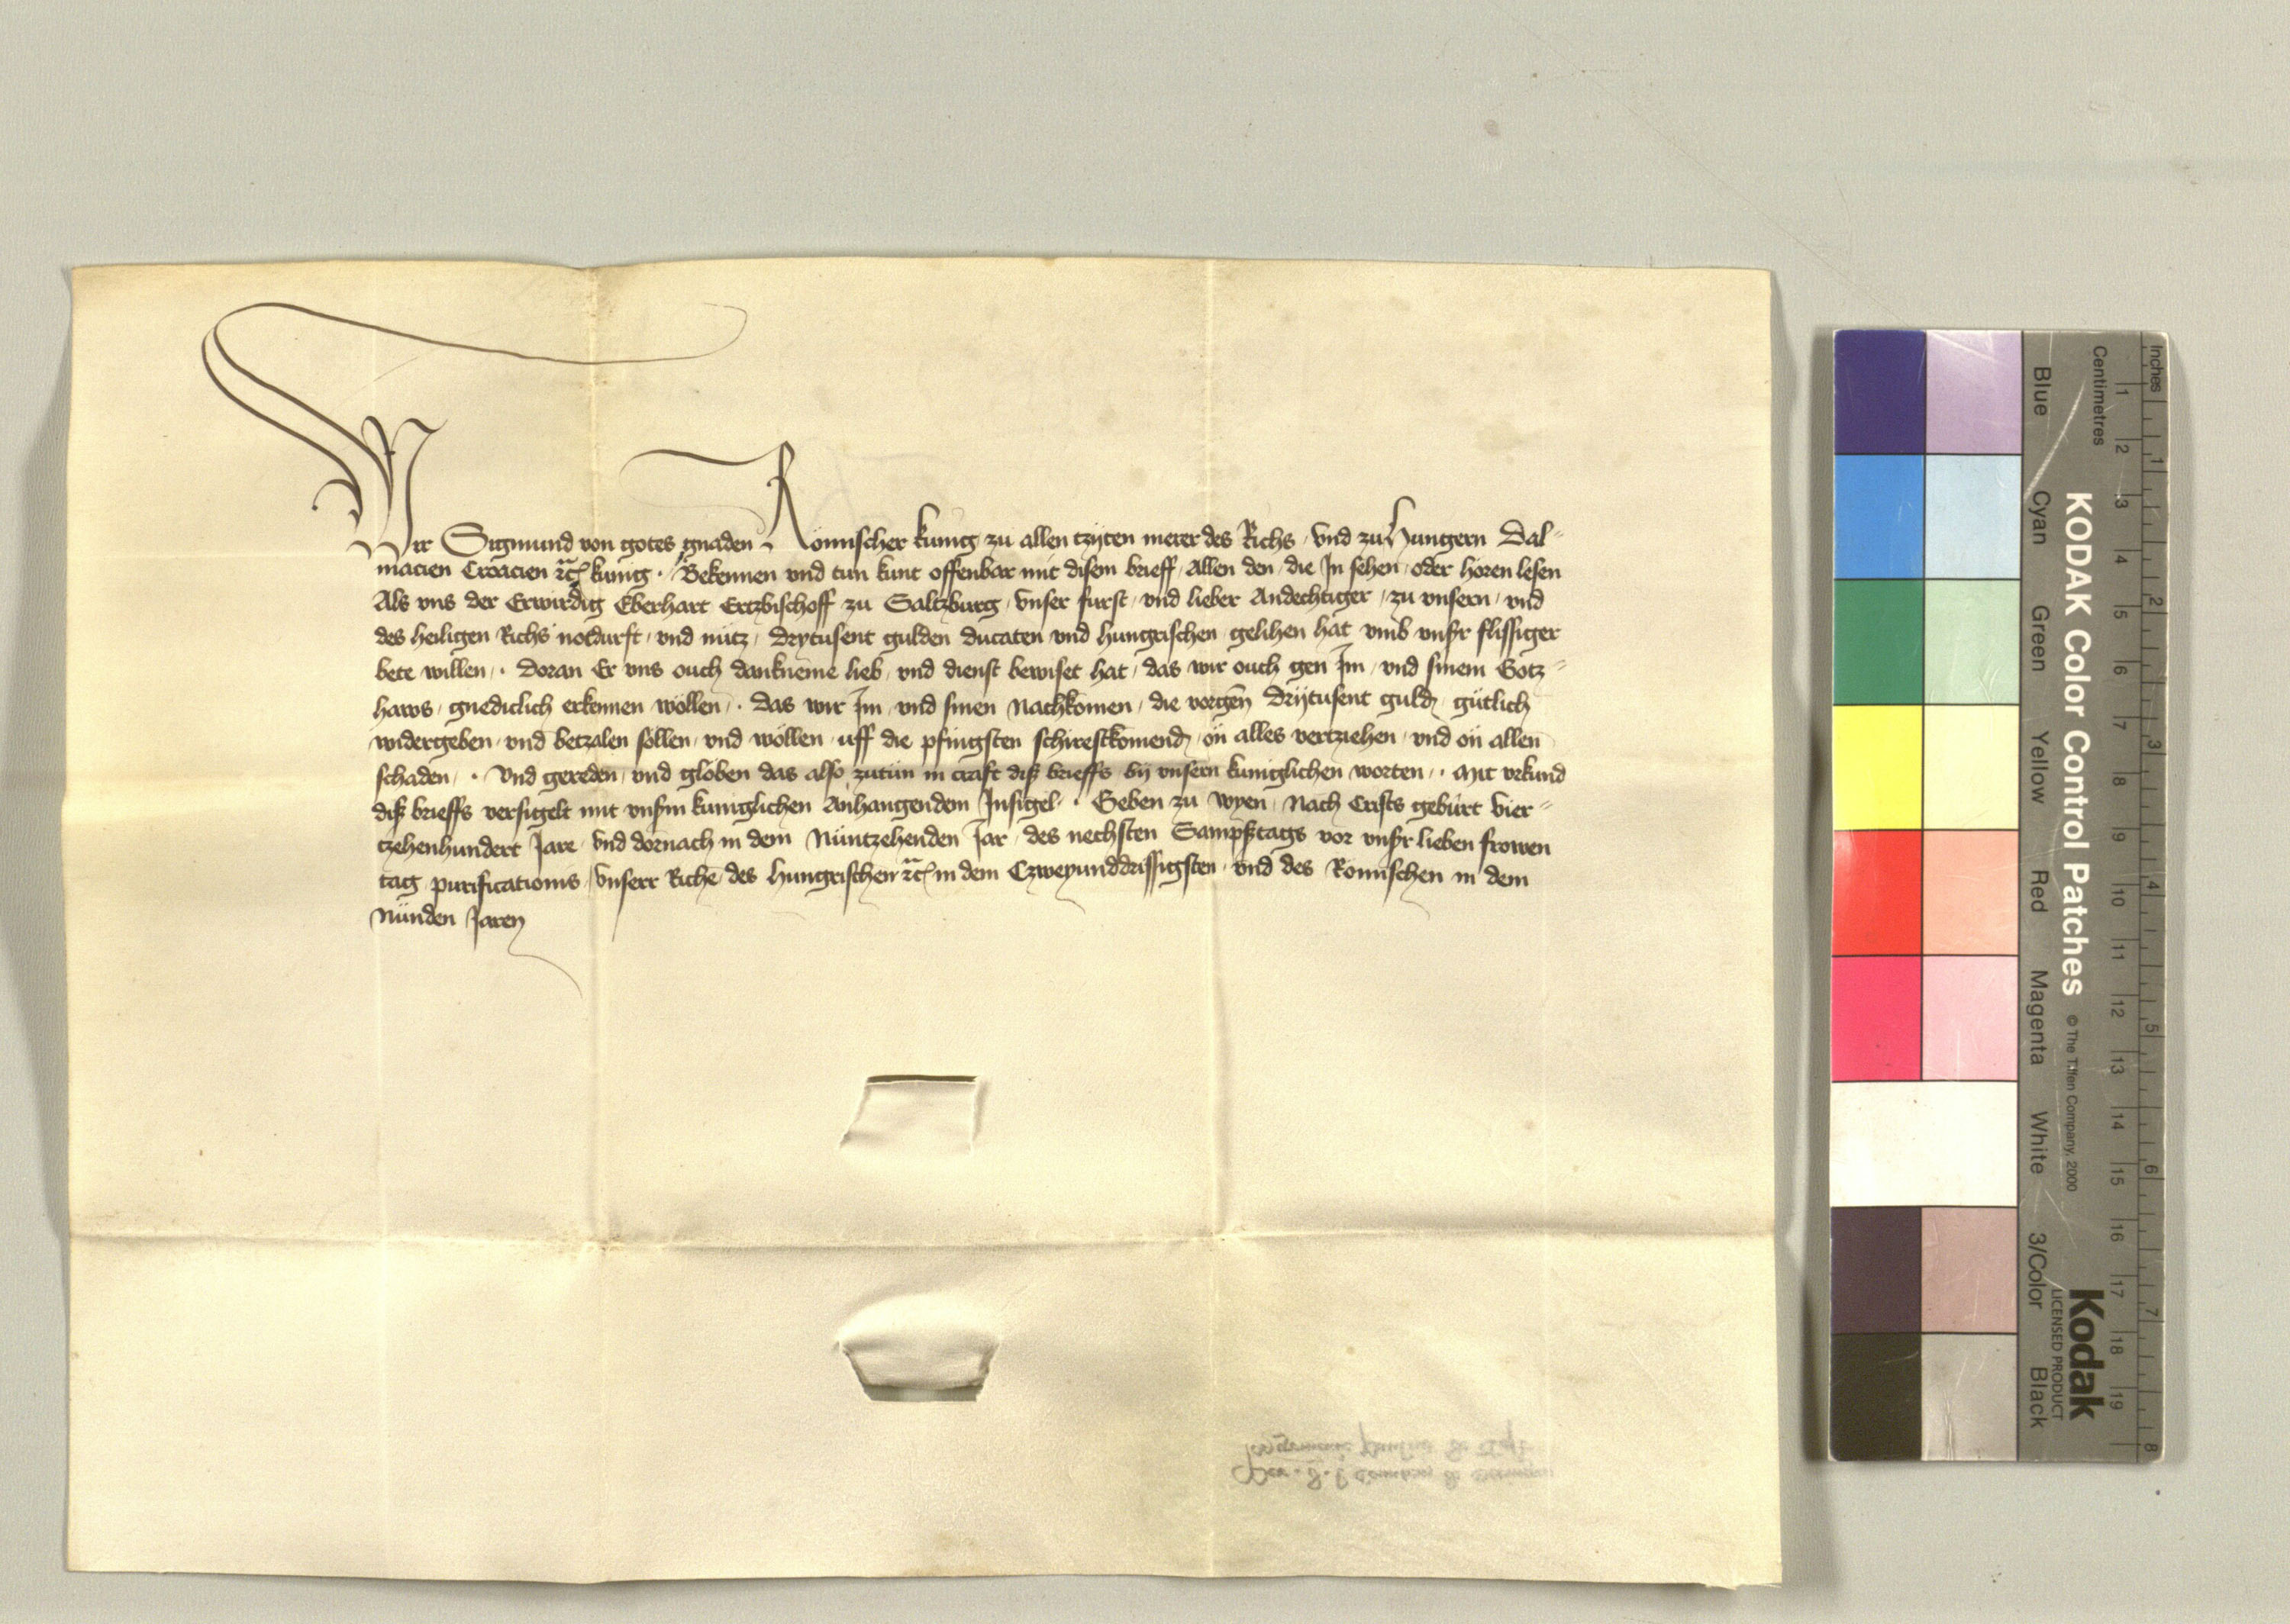 Wir Sigmund von gotes gnaden Römischer kunig zu allen tzyten merer des Richs und zu Hungern Dal-
macien Croacien etc kunig. Bekennen und tun kunt offenbar mit disem brieff Allen den die In sehen oder hören lesen
Als uns der Erwirdig Eberhart Ertzbischoff zu Saltzburg unser furst und lieber Andechtiger zu unsern und
des heiligen Richs notdurft und nütz drytusent gulden ducaten und hungrischen gelihen hat umb unsr flissiger
bete willen. doran Er uns ouch danknéme lieb und dienst bewiset hat das wir ouch gen Im und sinem Gotz-
haws gnediclich erkennen wöllen. das wir Im und sinen Nachkomen die vorgen drytusent guld gütlich
widergeben und betzalen söllen und wöllen uff die pfingsten schirestkomend ön alles vertziehen und ön allen
schaden. Und gereden und globen das also zutün in craft diß brieffs by unsern kuniglichen worten. Mit urkund
diß brieffs versigelt mit unsrm kuniglichen Anhangendem Insigel. Geben zu Wyen Nach Crists gebürt vier-
tzehenhundert Jare und dornach in dem Nüntzehenden Jar des nechsten Sampßtags vor unsr lieben frowen
tag purificationis unserr Riche des hungrischen etc in dem Czweyunddrissigsten und des Romischen in dem
Nünden Jaren
KODAK Color Control Patches © The Tiffen Company, 2000
Kodak
LICENSED PRODUCT
Blue Cyan Green Yellow Red Magenta White 3/Color Black
Centimetres 1 2 3 4 5 6 7 8 9 10 11 12 13 14 15 16 17 18 19
Inches 1 2 3 4 5 6 7 8